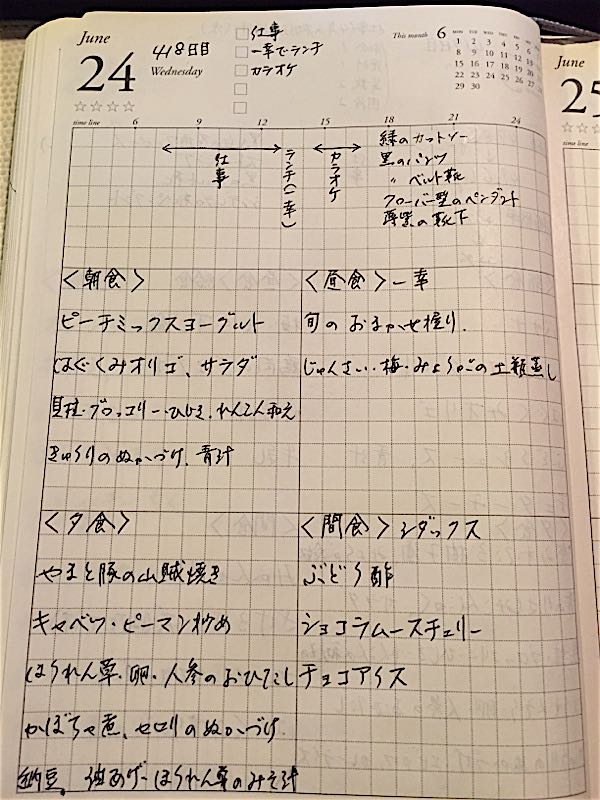 June
24
418日目
Wednesday
☆☆☆☆
仕事
一幸でランチ
カラオケ
This month 6
MON TUE WED THU FRI SAT SUN
1 2 3 4 5 6 7
8 9 10 11 12 13 14
15 16 17 18 19 20 21
22 23 24 25 26 27 28
29 30
time line 6 9 12 15 18 21 24
仕事
ランチ(一幸)
カラオケ
緑のカットソー
黒のパンツ
〃 ベルト靴
フローバー型のペンダント
の靴下
<朝食>
ピーチミックスヨーグルト
はぐくみオリゴ、サラダ
貝柱・ブロッコリー・ひじき、れんこん和え
きゅうりのぬかづけ、青汁
<昼食>一幸
旬のおまかせ握り.
じゅんさい・梅・みょうがの土瓶蒸し
<夕食>
やまと豚の山賊焼き
キャベツ・ピーマン炒め
ほうれん草・卵・人参のおひたし
かぼちゃ煮、セロリのぬかづけ
納豆。油あげ・ほうれん草のみそ汁
<間食>シダックス
ぶどう酢
ショコラムースチェリー
チョコアイス
June
25
☆☆
time line